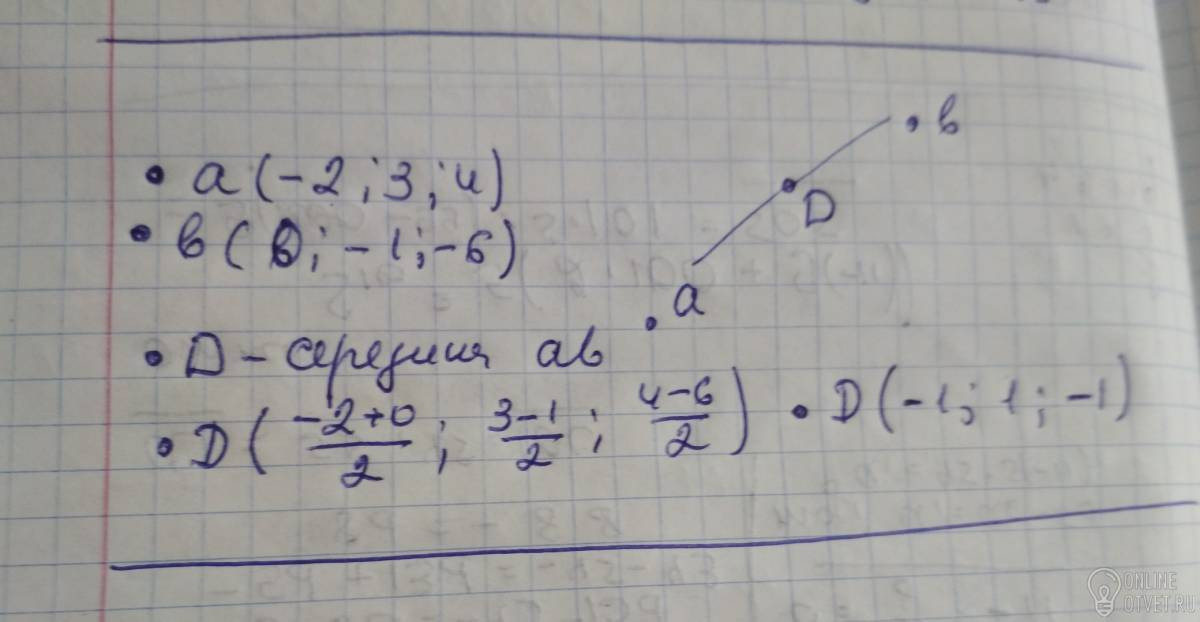 • a (-2; 3; 4)
• в (0; -1; -6)
• D - середина ав
• D ( (-2+0)/2 ; (3-1)/2 ; (4-6)/2 ) • D (-1; 1; -1)
в
D
a
ONLINE
OTVET.RU